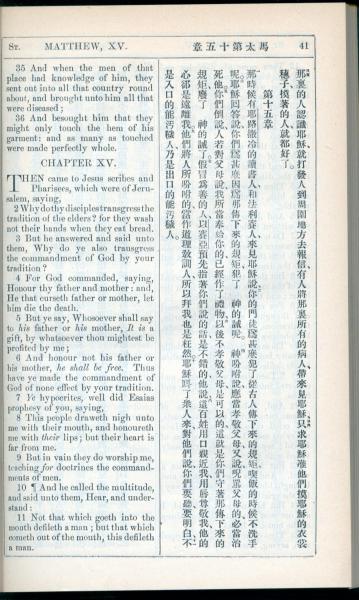 St. MATTHEW, XV.
35 And when the men of that
place had knowledge of him, they
sent out into all that country round
about, and brought unto him all that
were diseased;
36 And besought him that they
might only touch the hem of his
garment: and as many as touched
were made perfectly whole.
CHAPTER XV.
THEN came to Jesus scribes and
Pharisees, which were of Jeru-
salem, saying,
2 Why do thy disciples transgress the
tradition of the elders? for they wash
not their hands when they eat bread.
3 But he answered and said unto
them, Why do ye also transgress
the commandment of God by your
tradition?
4 For God commanded, saying,
Honour thy father and mother: and,
He that curseth father or mother, let
him die the death.
5 But ye say, Whosoever shall say
to his father or his mother, It is a
gift, by whatsoever thou mightest be
profited by me;
6 And honour not his father or
his mother, he shall be free. Thus
have ye made the commandment of
God of none effect by your tradition.
7 Ye hypocrites, well did Esaias
prophesy of you, saying,
8 This people draweth nigh unto
me with their mouth, and honoureth
me with their lips; but their heart is
far from me.
9 But in vain they do worship me,
teaching for doctrines the command-
ments of men.
10 ¶ And he called the multitude,
and said unto them, Hear, and under-
stand:
11 Not that which goeth into the
mouth defileth a man; but that which
cometh out of the mouth, this defileth
a man.
馬太第十五章
41
那裏的人認識耶穌就打發人到周圍地方去報信有人將那裏所有的病人帶來見耶穌只求耶穌准他們摸耶穌的衣裳
繸子摸著的人就都好了。
第十五章
那時候有耶路撒冷的讀書人和法利賽人來見耶穌說你的門徒爲甚麽犯了從古人傳下來的規矩喫飯的時候不洗手
呢耶穌回答說你們爲甚麽因爲那傳下來的規矩犯了 神的誡呢 神吩咐說應當孝敬父母又說咒罵父母的必當治
死他你們倒說人若對父母說我所當奉給你的已經作了禮物以後不孝敬父母是可以的這就是你們守著那傳下來的
規矩廢了 神的誡了假冒爲善的人以賽亞預先指著你們說的話是不錯的他說這百姓用口親近我用唇尊敬我他的
心卻是遠離我他們將人所吩咐的當作道理教訓人所以拜我也是枉然耶穌叫了衆人來對他們說你們要聽要明白不
是入口的能污穢人乃是出口的能污穢人。